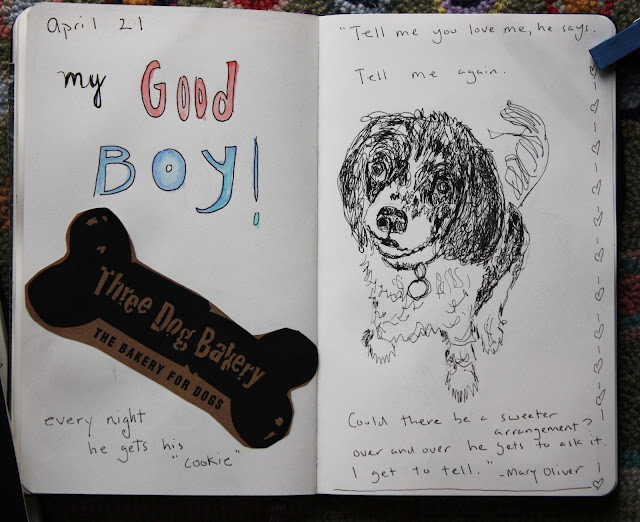 April 21
my Good
BOY!
Three Dog Bakery
THE BAKERY FOR DOGS
every night
he gets his
"cookie"
"Tell me you love me, he says.
Tell me again.
Could there be a sweeter
arrangement?
over and over he gets to ask it.
I get to tell." -Mary Oliver